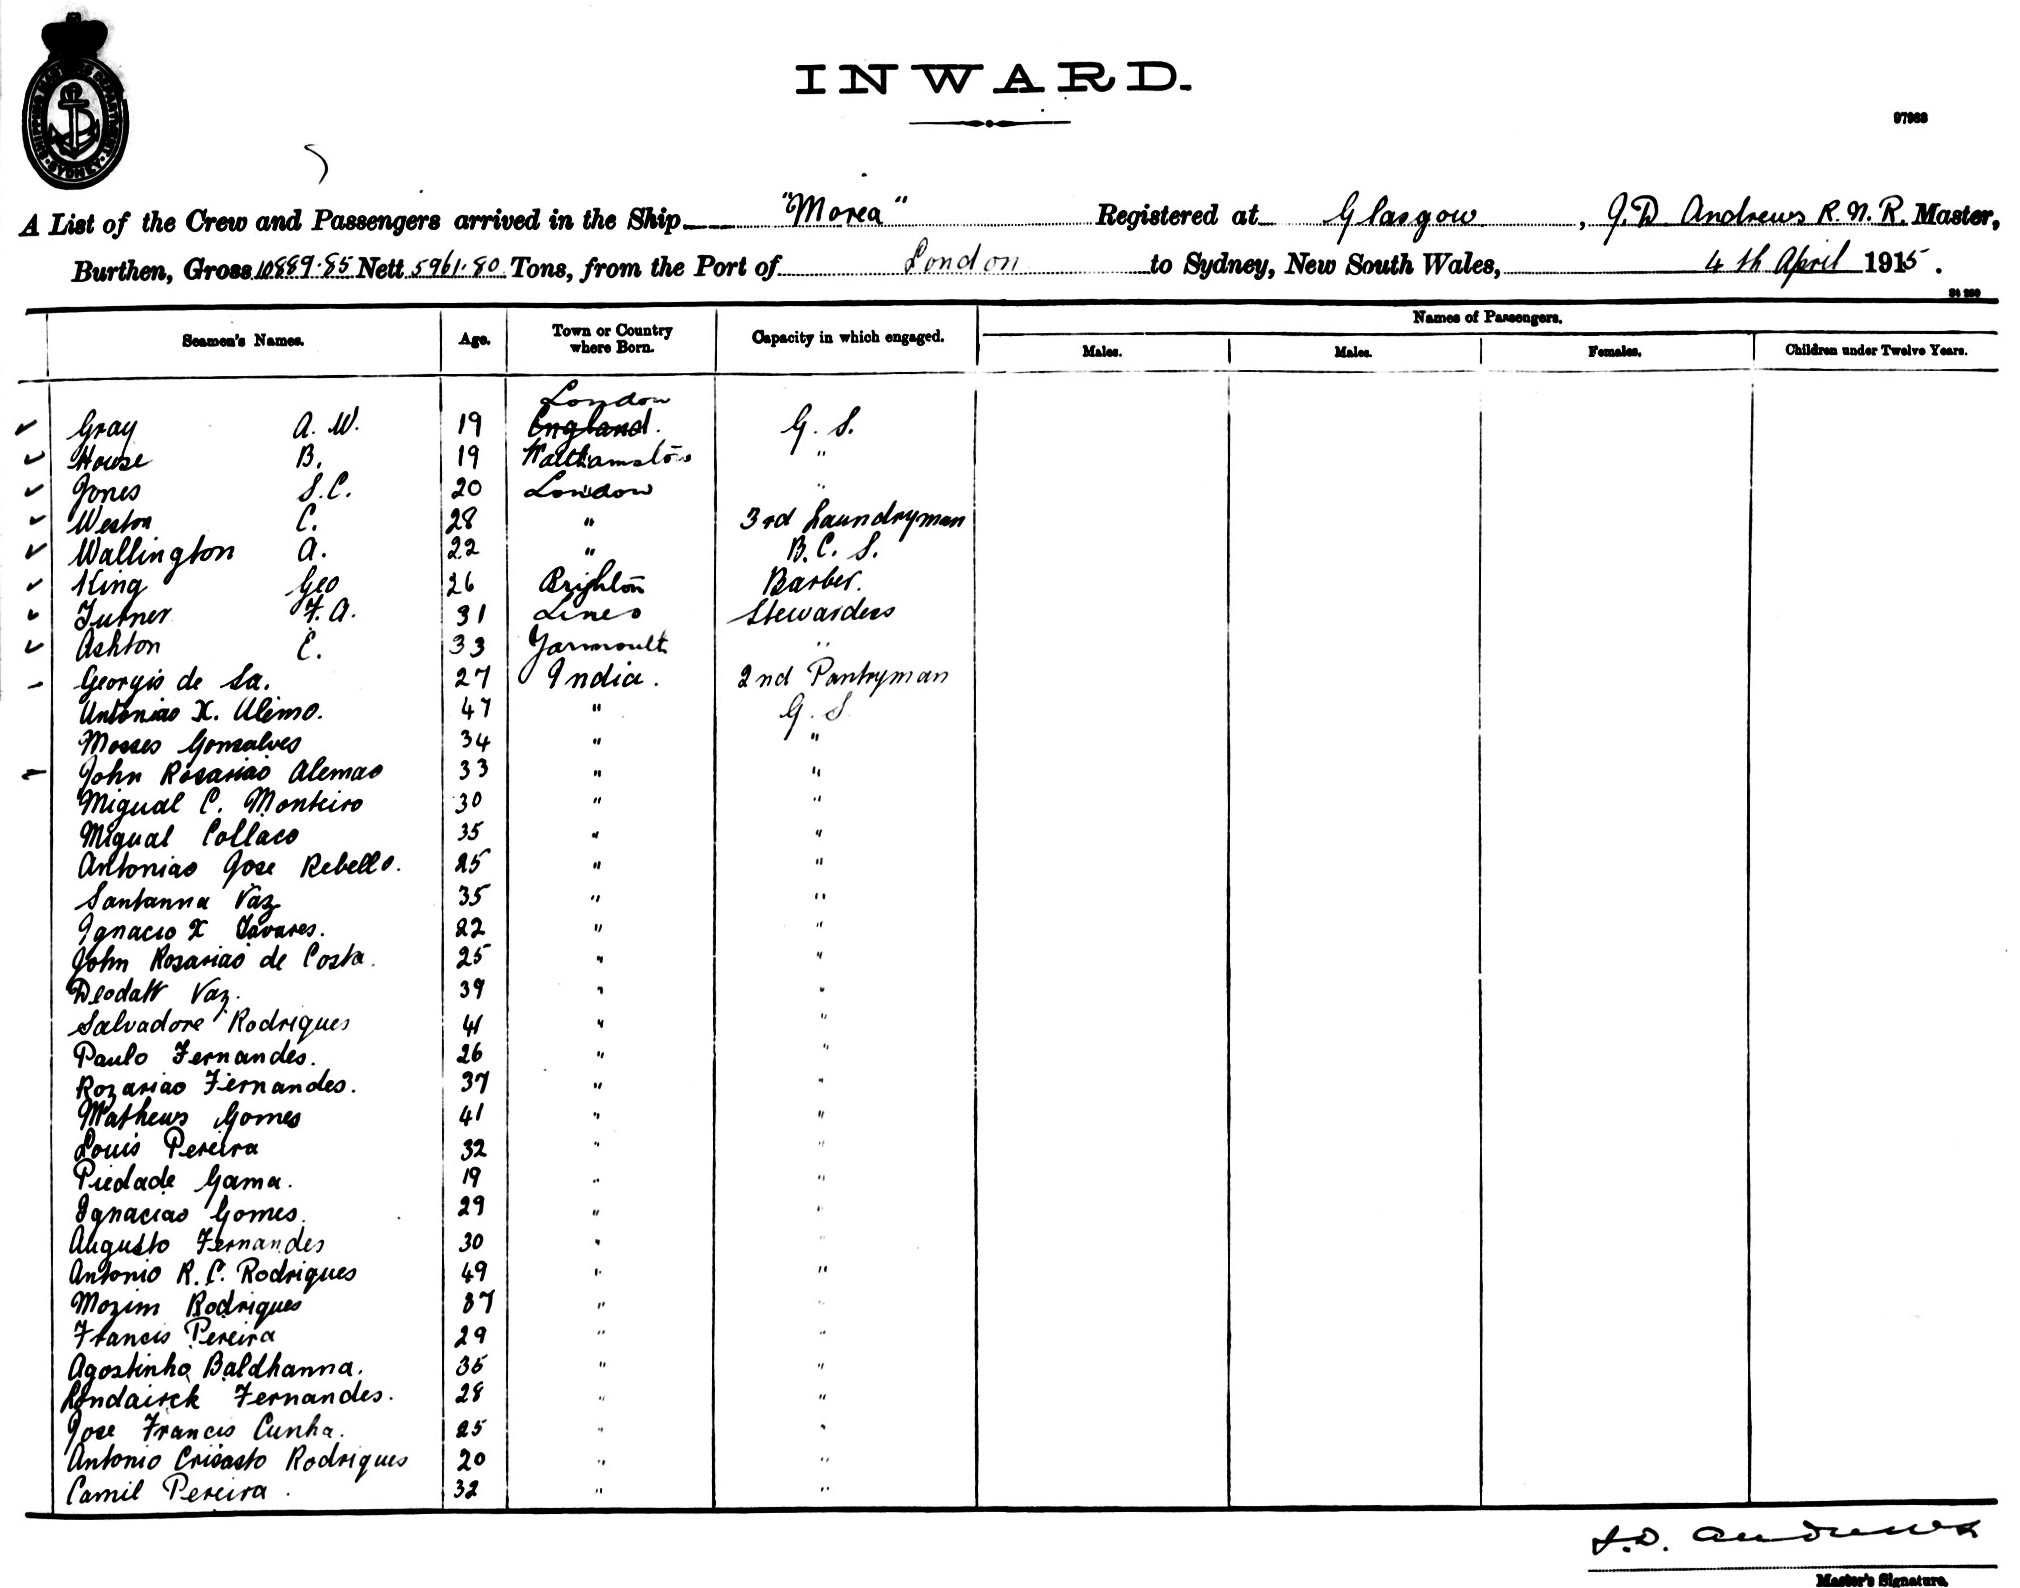 SHIPPING MASTER'S DEPARTMENT SYDNEY
INWARD.
97963
A List of the Crew and Passengers arrived in the Ship "Morea" Registered at Glasgow, J. D Andrews R. N. R. Master,
Burthen, Gross 10889.85 Nett 5961.80 Tons, from the Port of London to Sydney, New South Wales, 4th April 1915.
Seamen's Names. Age. Town or Country where Born. Capacity in which engaged. Names of Passengers.
Males. Males. Females. Children under Twelve Years.
London
Gray A. W. 19 England. G. S.
House B. 19 Walthamstow "
Jones S. C. 20 London "
Weston C. 28 " 3rd Laundryman
Wallington A. 22 " B. C. S.
King Geo 26 Brighton Barber.
Turner F. A. 31 Lincs Stewardess
Ashton E. 33 Yarmouth "
Georgis de Sa. 27 India. 2nd Pantryman
Antoniao X. Alemo. 47 " G. S
Mosses Gonsalves 34 " "
John Rosariao Alemao 33 " "
Migual C. Monteiro 30 " "
Migual Collaco 35 " "
Antoniao Jose Rebello. 25 " "
Santanna Vaz 35 " "
Ignacio X Tavares. 22 " "
John Rosariao de Costa. 25 " "
Deodatt Vaz. 39 " "
Salvadore Rodrigues 41 " "
Paulo Fernandes. 26 " "
Rozariao Fernandes. 37 " "
Mathews Gomes 41 " "
Louis Pereira 32 " "
Piedade Gama. 19 " "
Ignaciao Gomes. 29 " "
Augusto Fernandes 30 " "
Antonio R. C. Rodrigues 49 " "
Mozim Rodrigues 37 " "
Francis Pereira 29 " "
Agostinho Baldhanna. 35 " "
Londairck Fernandes. 28 " "
Jose Francis Cunha. 25 " "
Antonio Crisasto Rodrigues 20 " "
Camil Pereira. 32 " "
J. D. Andrews
Master's Signature.